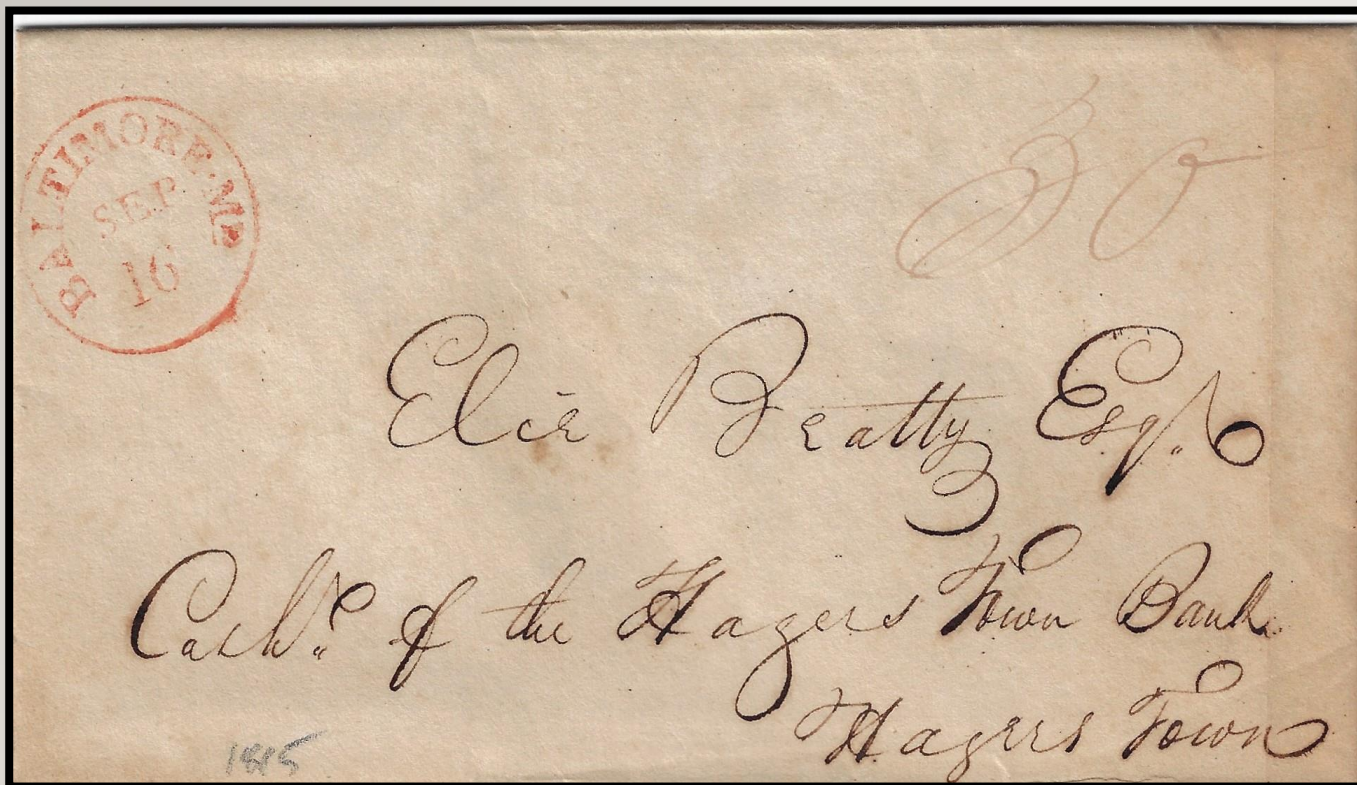 BALTIMORE. Md
SEP
16
Elie Beatty Esqr.
Cashr. of the Hagers Town Bank.
Hagers Town